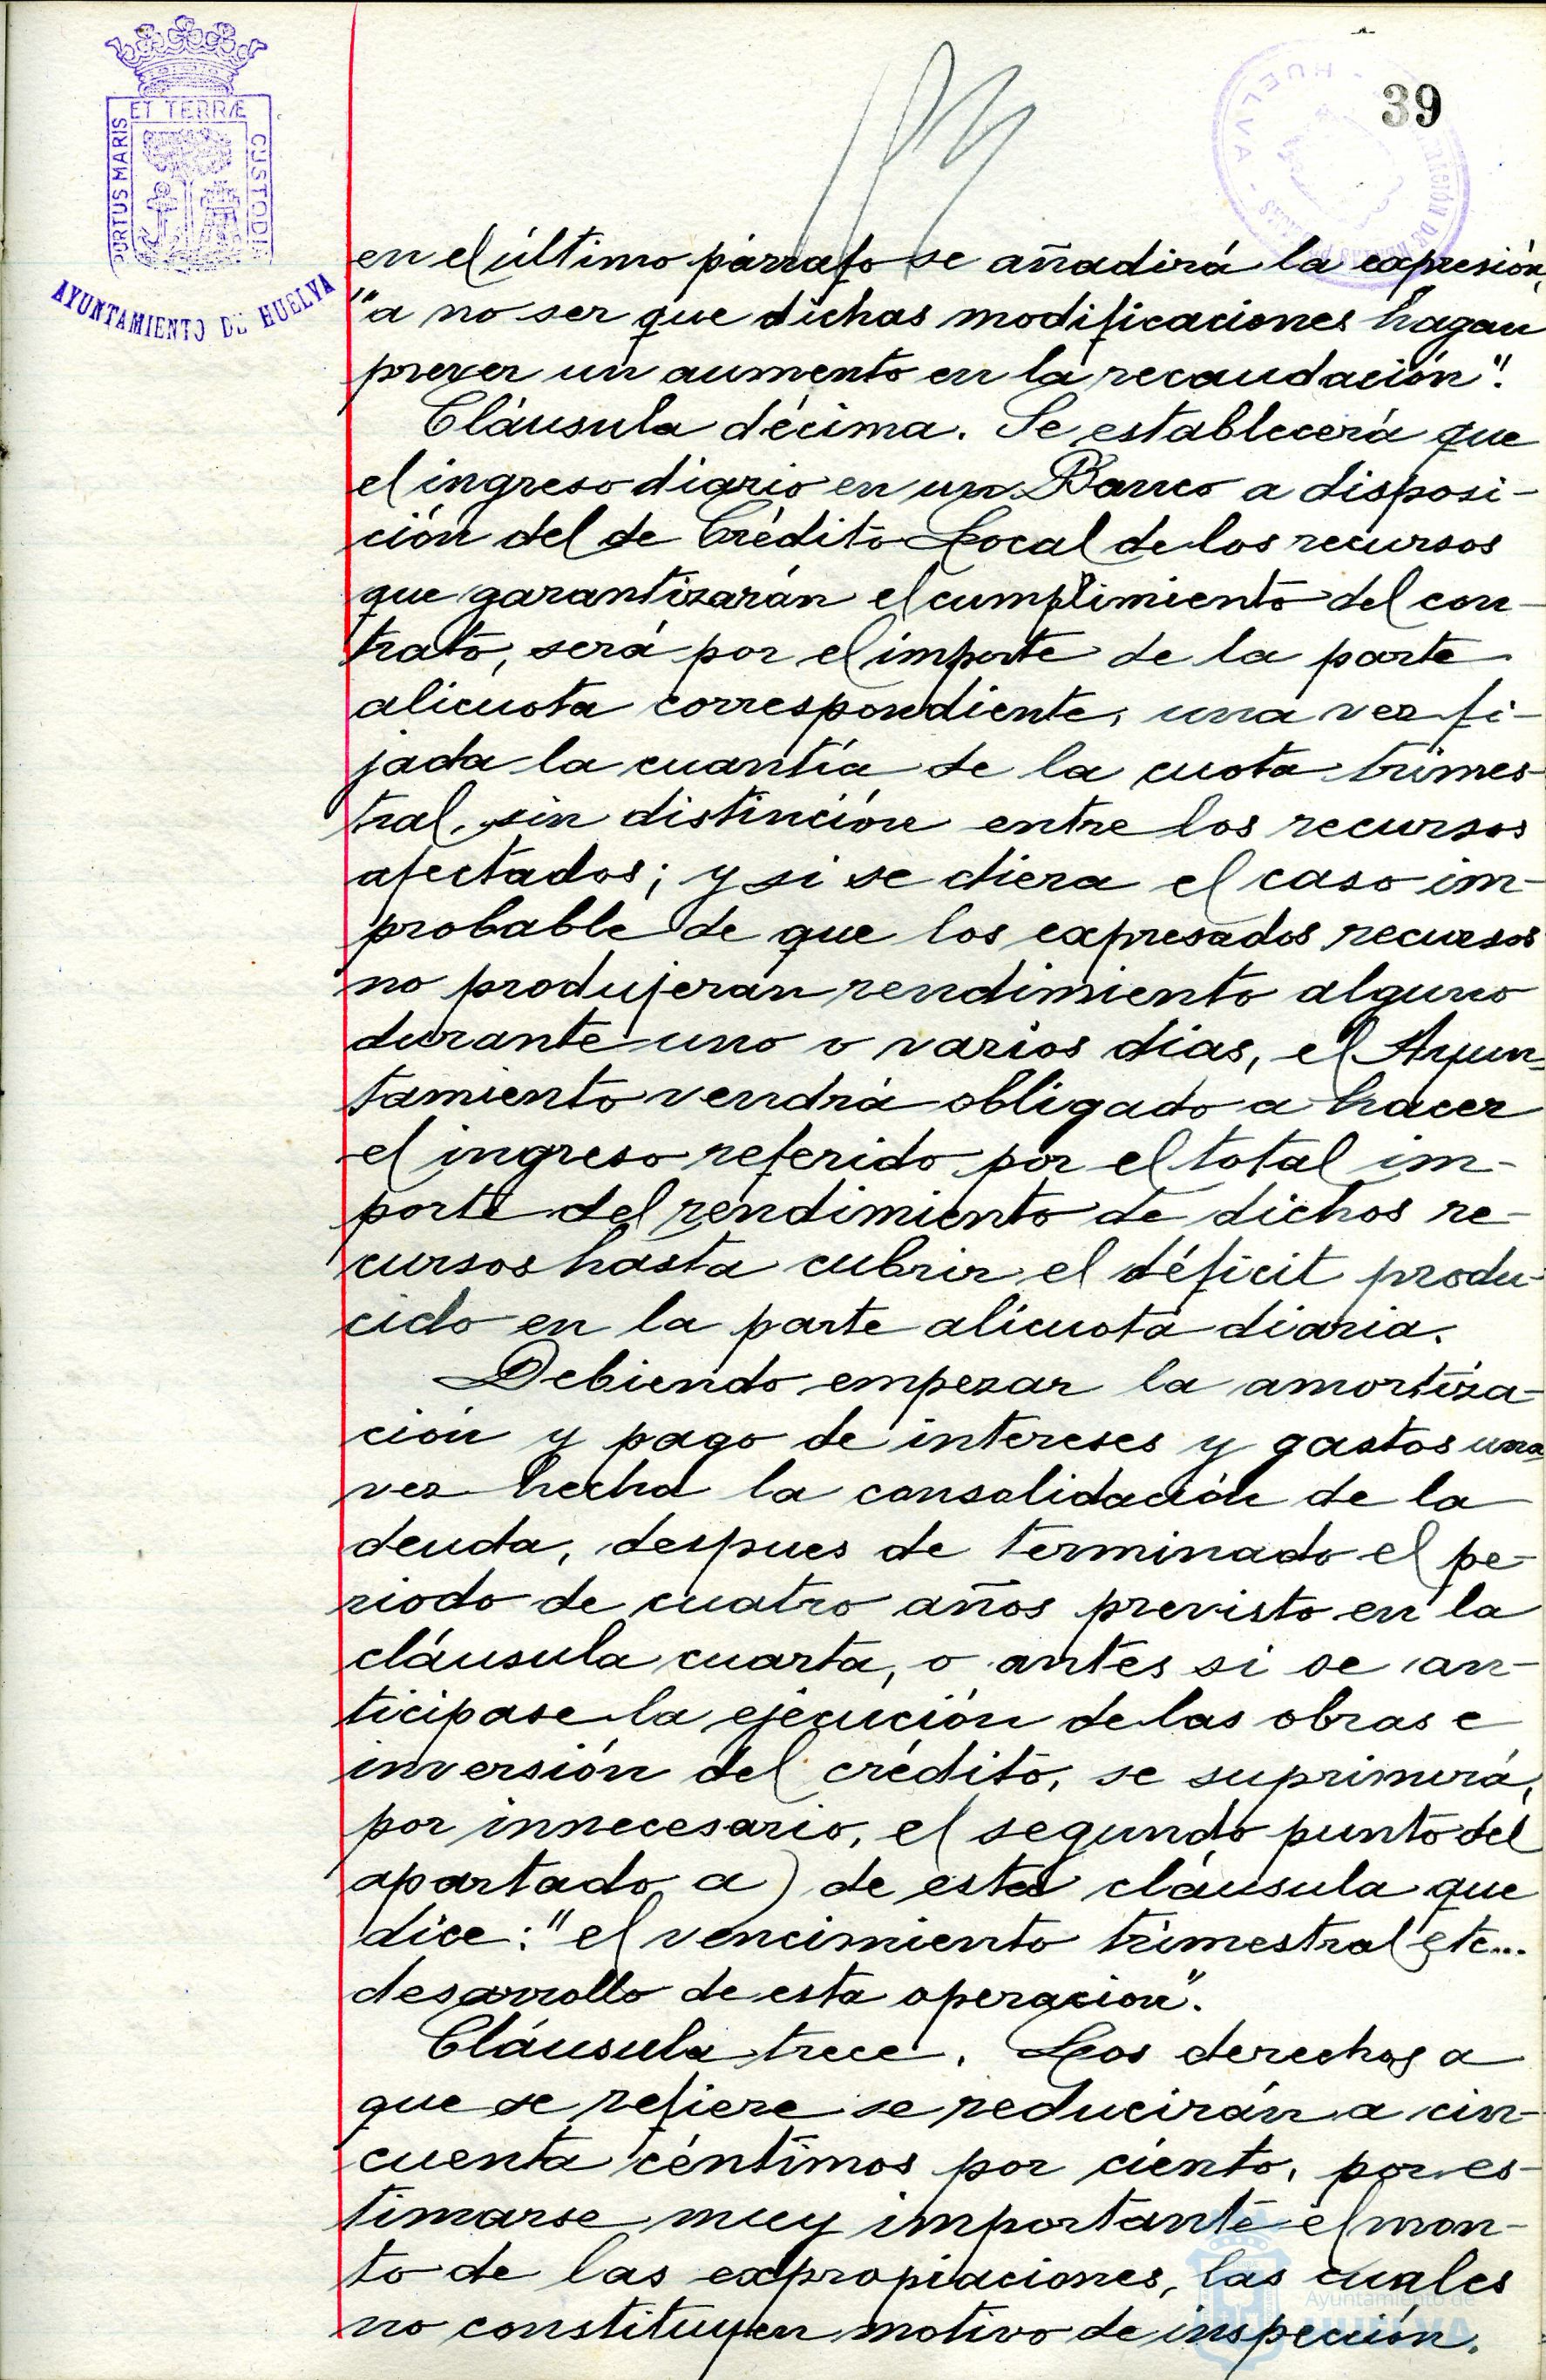 39
PORTUS MARIS
ET TERRÆ
CUSTODIA
AYUNTAMIENTO DE HUELVA
HUELVA
en el último párrafo se añadirá la expresión,
"a no ser que dichas modificaciones hagan
prever un aumento en la recaudación".
Cláusula décima. Se establecerá que
el ingreso diario en un Banco a disposi-
ción del de Crédito Local de los recursos
que garantizarán el cumplimiento del con-
trato, será por el importe de la parte
alicuota correspondiente, una vez fi-
jada la cuantía de la cuota trimes-
tral, sin distinción entre los recursos
afectados; y si se diera el caso im-
probable de que los expresados recursos
no produjeran rendimiento alguno
durante uno o varios dias, el Ayun-
tamiento vendrá obligado a hacer
el ingreso referido por el total im-
porte del rendimiento de dichos re-
cursos hasta cubrir el déficit produ-
cido en la parte alicuota diaria.
Debiendo empezar la amortiza-
ción y pago de intereses y gastos una
vez hecha la consolidación de la
deuda, despues de terminado el pe-
riodo de cuatro años previsto en la
cláusula cuarta, o antes si se an-
ticipase la ejecución de las obras e
inversión del crédito, se suprimirá,
por innecesario, el segundo punto del
apartado a) de esta cláusula que
dice: "el vencimiento trimestral etc...
desarrollo de esta operación".
Cláusula trece. Los derechos a
que se refiere se reducirán a cin-
cuenta céntimos por ciento, por es-
timarse muy importante el mon-
to de las expropiaciones, las cuales
no constituyen motivo de inspección.
Ayuntamiento de
HUELVA